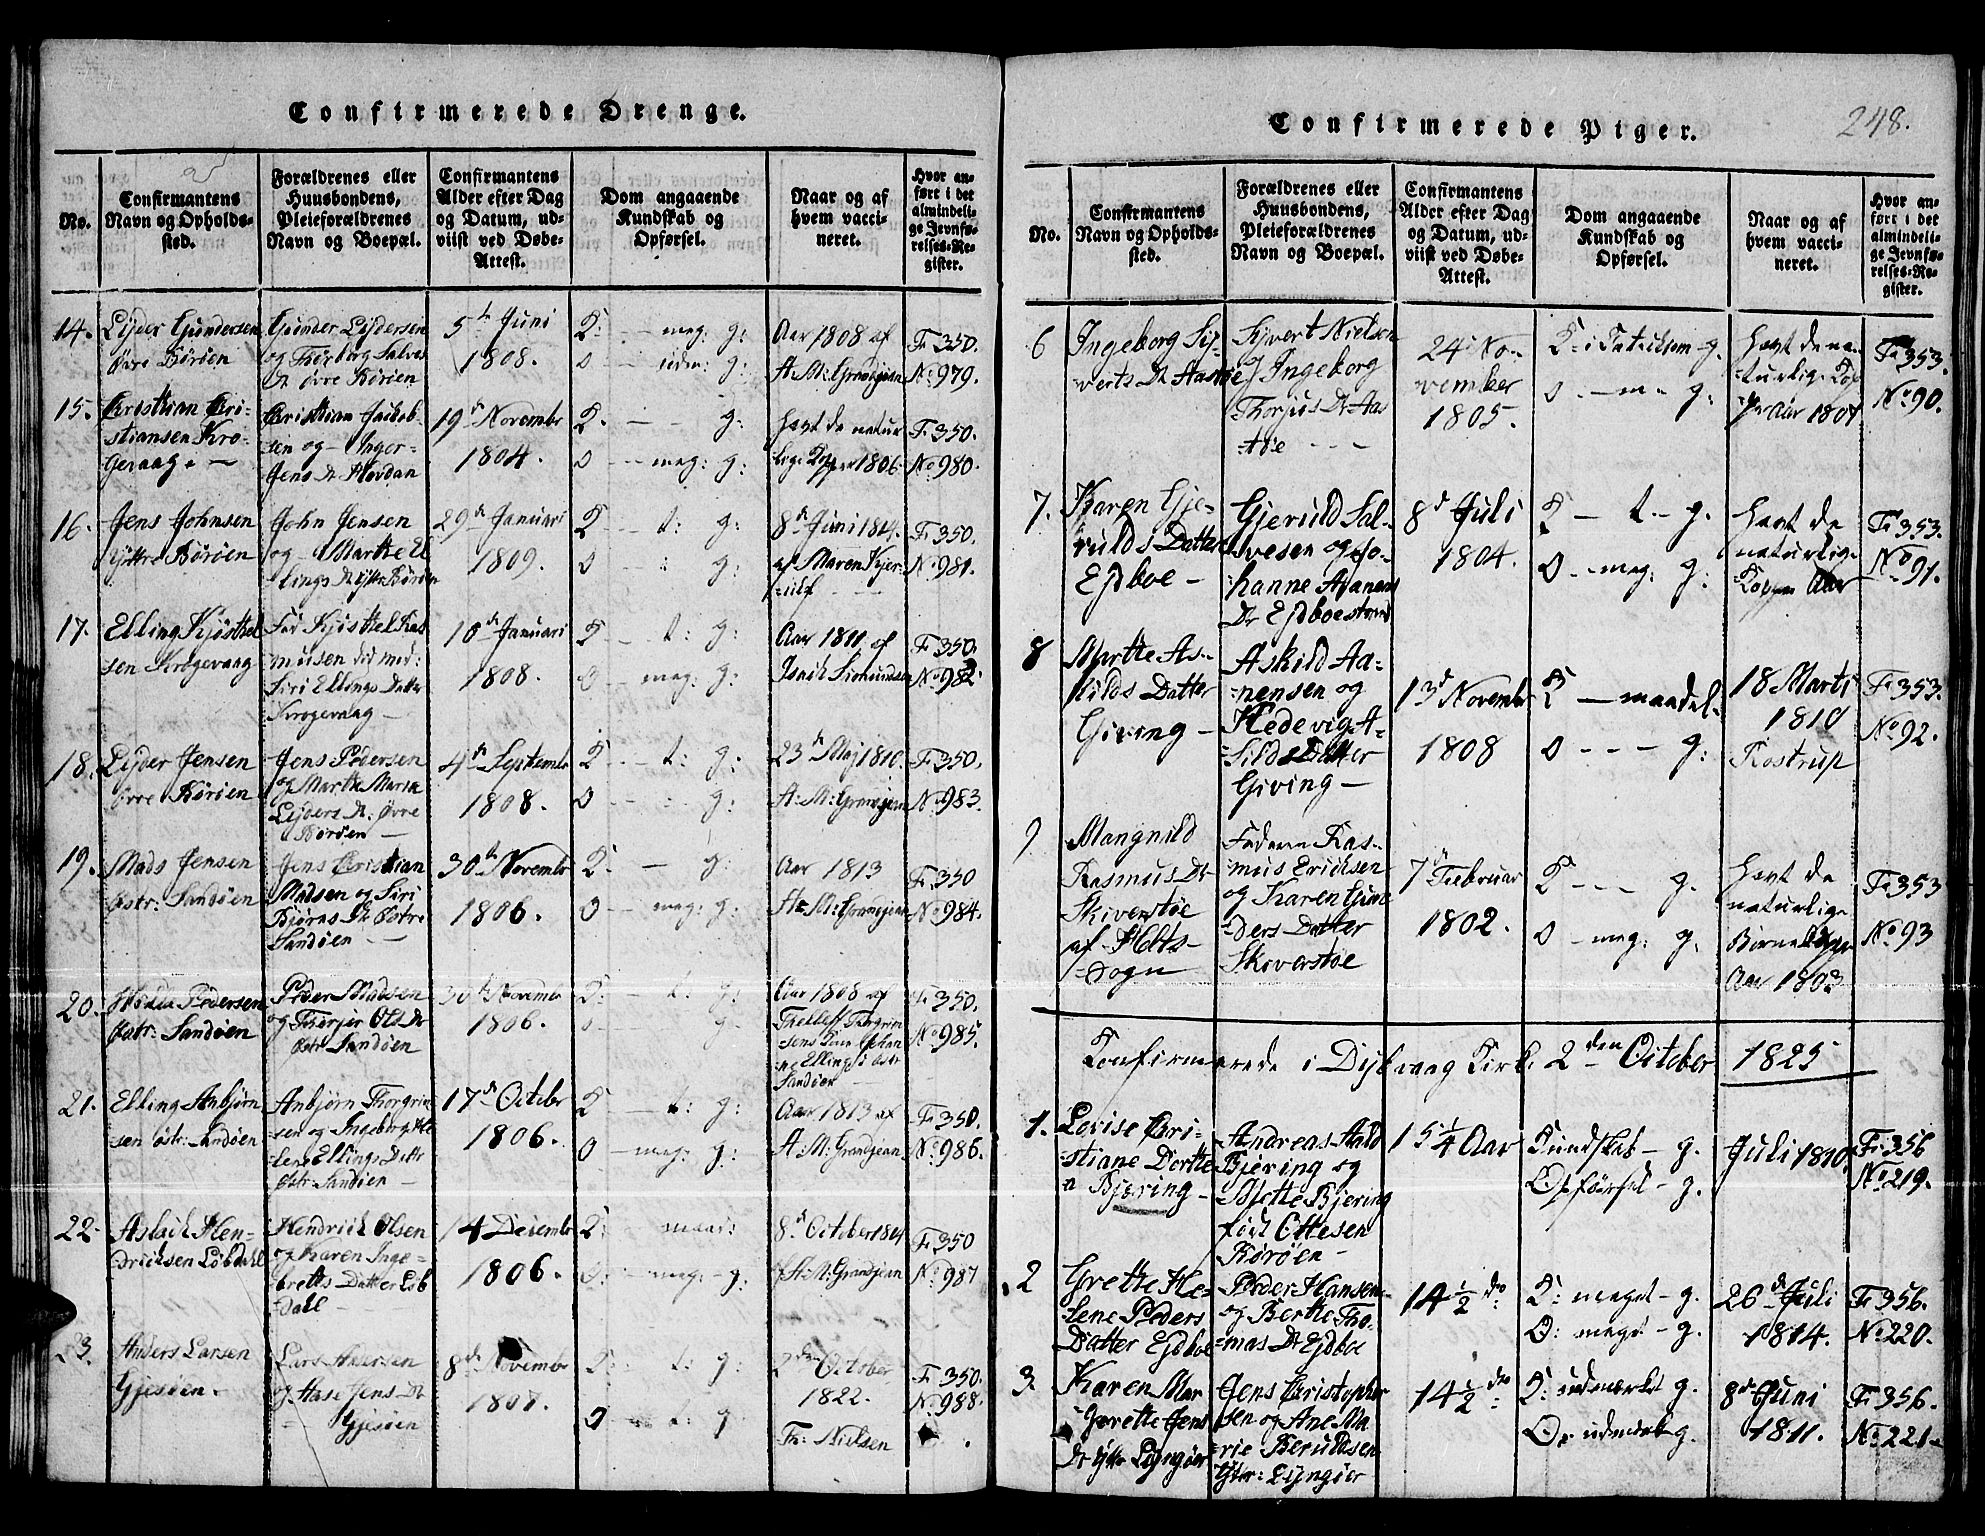 Confirmerede Drenge.
No.
Confirmantens
Navn og Opholds-
sted.
Forældrenes eller
Huusbondens,
Pleieforældrenes
Navn og Boepæl.
Confirmantens
Alder efter Dag
og Datum, ud-
viist ved Døbe-
Attest.
Dom angaaende
Kundskab og
Opførsel.
Naar og af
hvem vacci-
neret.
Hvor an-
ført i det
almindeli-
ge Jevnfø-
relses-Re-
gister.
14.
Lyder Gundersen
øvre Børøen
Gunder Lydersen
og Thorborg Salves
Dr øvre Børøen
5te Juni
1808.
K: - meg: g:
O - - g:
Aar 1808 af
A: M: Grandjean
F: 350.
No 979.
15.
Christian Chri-
stiansen Kro-
gevaag. -
Christian Jakob-
sen og - Inger
Jens Dr
19de Novembr
1804.
K. - - - g:
O - - meg: g:
havt de natur
lige Kopper 1806.
F: 350.
No 980.
16.
Jens Johnsen
Yttre Børøen
John Jensen
og - Marthe El
lings Dr Yttr Børøen
29de Januari
1809.
K - - t: g:
O - : g:
8de Juni 1814.
af Maren Kjer-
ulf
F: 350.
No 981.
17.
Elling Kjøstel
sen Krogevaag
Kjøstel Ras
musen
Siri Ellings Datter
Krogevaag -
10de Januari
1808.
K - - t: g:
O - meg: g:
Aar 1811 af
Isak Sigmundsen
F: 350.
No 982.
18.
Lyder Jensen
øvre Børøen
Jens Pedersen
og Marthe Maria
Lyders Dr: øvre
Børøen -
4de Septembr
1808.
K - - t: g:
O - - : g:
23de Maj 1810.
A: M: Grandjean
F: 350.
No 983.
19.
Mads Jensen
østr: Sandøen
Jens Christian
Madsen og Siri
Bjørns Dr østre
Sandøen -
30te Novembr
1806.
K - - g:
O - meg: g:
Aar 1813
A: M: Grandjean
F: 350
No 984.
20.
Pedersen
østr: Sandøen
Peder Madsen
og Thorjer Ols Dr
østr Sandøen
30te Novembr
1806.
K: - t: g:
O - g:
Aar 1808 af
Thellef Thorgrim
sens Johan
ne Ellings østr
Sandøen
F: 350.
No 985.
21.
Elling Anbjørn
sen østr: Sandøen
Anbjørn Thorgrim
sen og Ingeborg He
lene Ellings Dattr
østr: Sandøen -
17de Octobr
1806.
K - - t: g:
O - meg: g:
Aar 1813 af
A: M: Grandjean
F: 350.
No 986.
22.
Aslach Hen-
dricksen Løbdahl
Hendrick Olsen
og Karen Inge-
bretts Datter Løb
dahl -
14 Decembr
1806.
K:
O: - meg: - g.
8de October 1814
A: M: Grandjean
F: 350
No 987
23.
Anders Larsen
Gjesøen.
Lars Andersen
og Aase Jens Dr
Gjesøen
8de Novembr
1807.
K: - t: g:
O - t: g:
2den October
1822.
Fr: Nielsen
F: 350.
No 988.
Confirmerede Piger.
248.
No.
Confirmantens
Navn og Opholds-
sted.
Forældrenes eller
Huusbondens,
Pleieforældrenes
Navn og Boepæl.
Confirmantens
Alder efter Dag
og Datum, ud-
viist ved Døbe-
Attest.
Dom angaaende
Kundskab og
Opførsel.
Naar og af
hvem vacci-
neret.
Hvor an-
ført i det
almindeli-
ge Jevnfø-
relses-Re-
gister.
6
Ingeborg Sy-
verts Dr
Syvert Nielsen
og Ingeborg
Thorjus Dr Aas
24 No-
vember
1805.
K - g.
O - m - g.
havt de na-
turlige Kop
per Aar 1807
F: 353.
No 90.
7.
Karen Gje-
rulds Datter
Ejdboe -
Gjeruld Sal-
vesen og Jo-
hanne Aanens
Dr Ejdboestrand
8de Juli
1804.
K - t. - g.
O - meg: g:
havt de
naturlige
Kopper Aar
F: 353.
No 91.
8
Marthe As-
kilds Datter
Giving -
Askild Aa-
nensen og
Hedevig A-
Datter
Giving -
13de Novembr
1808
K - maadel.
O - - - g:
18 Marts
1810
Rostrup
F: 353.
No 92.
9
Mangnild
Rasmus Dr
af Holts-
Sogn
Faderen Ras-
mus Ericksen
og Karen Gun
ders Datter
7de Februar
1802.
K - - - g.
O - meg: g.
havt de
naturlige
Børne Kopper
Aar 1803
F: 353
No 93
Confirmerede i Dybvaag Kirke 2den October 1825
1.
Lovise Chri-
stiane Dorthe
a Bjering -
Andreas
Bjering og
Mette Bjering
født Ottesen
Børøen -
15 1/4 Aar
Kundskab - g.
Opførsel - g.
Juli 1810.
F: 356
No 219.
2
Grethe He-
lene Peders
Datter Ejdboe
Peder Hansen
og Berthe Tho-
mas Dr Ejdboe
14 1/2 do
K: meget - g.
O: meget - g.
26de Juli
1814.
F: 356.
No 220.
3.
Karen Mar
grethe Jens
Dr Yttr Lyngøer
Jens Christopher
sen og Ane Ma
rie Berulfsen
Ytter: Lyngøer
14 1/2 do
K: udmærket g.
O: udmærket g.
8de Juni
1811.
F: 356.
No 221.